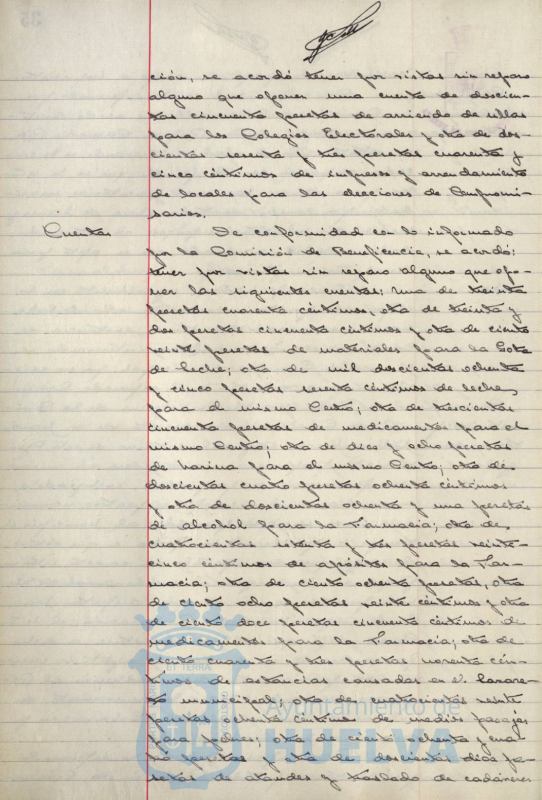 ción, se acordó tener por vistas sin reparo
alguno que oponer una cuenta de doscien-
tas cincuenta pesetas de arriendo de sillas
para los Colegios Electorales y otra de dos-
cientas sesenta y tres pesetas cuarenta y
cinco céntimos de impresos y arrendamiento
de locales para las elecciones de Compromi-
sarios.
Cuentas
De conformidad con lo informado
por la Comisión de Beneficencia, se acordó:
tener por vistas sin reparo alguno que opo-
ner las siguientes cuentas: una de treinta
pesetas cuarenta céntimos, otra de treinta y
dos pesetas cincuenta céntimos y otra de ciento
veinte pesetas de materiales para la Gota
de leche; otra de mil doscientas ochenta
y cinco pesetas sesenta céntimos de leche,
para el mismo Centro; otra de trescientas
cincuenta pesetas de medicamentos para el
mismo Centro; otra de diez y ocho pesetas
de harina para el mismo Centro; otra de
doscientas cuatro pesetas ochenta céntimos
y otra de doscientas ochenta y una pesetas
de alcohol para la Farmacia; otra de
cuatrocientas setenta y tres pesetas veinte-
cinco céntimos de apósitos para la Far-
macia; otra de ciento ochenta pesetas, otra
de ciento ocho pesetas veinte céntimos y otra
de ciento doce pesetas cincuenta céntimos de
medicamentos para la Farmacia; otra de
ciento cuarenta y tres pesetas noventa cén-
timos de estancias causadas en el Lazare-
to municipal; otra de cuatrocientas veinte
pesetas ochenta céntimos de medios pasajes
para pobres; otra de ciento ochenta y cua-
tro pesetas y otra de doscientas diez pe-
setas de ataudes y traslado de cadáveres
ET TERRA
Ayuntamiento de
HUELVA